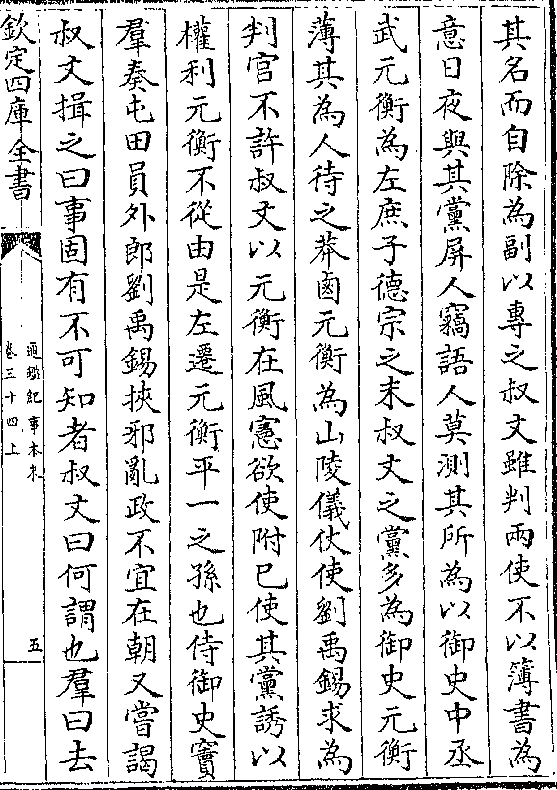 其名而自除為副以專之叔文雖判兩使不以簿書為
意日夜與其黨屏人竊語人莫測其所為以御史中丞
武元衡為左庶子德宗之末叔文之黨多為御史元衡
薄其為人待之莽鹵元衡為山陵儀仗使劉禹錫求為
判官不許叔文以元衡在風憲欲使附已使其黨誘以
權利元衡不從由是左遷元衡平一之孫也侍御史竇
羣奏屯田員外郎劉禹錫挾邪亂政不宜在朝又嘗謁
叔文揖之曰事固有不可知者叔文曰何謂也羣曰去
欽定四庫全書
通鑑紀事本末
卷三十四上
五